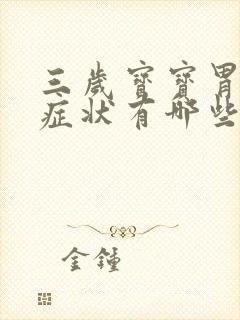 三歲寶寶胃
症狀有哪些
金鍾